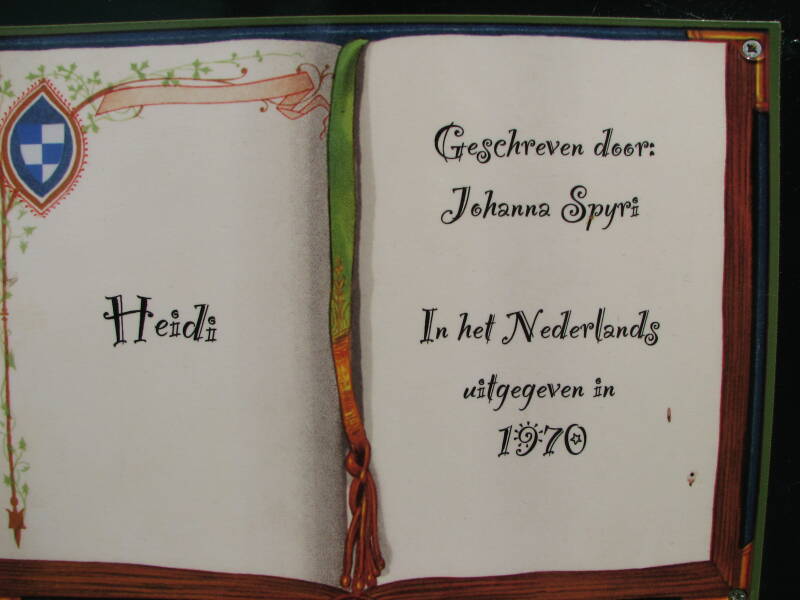 Heidi
Geschreven door:
Johanna Spyri
In het Nederlands
uitgegeven in
1970